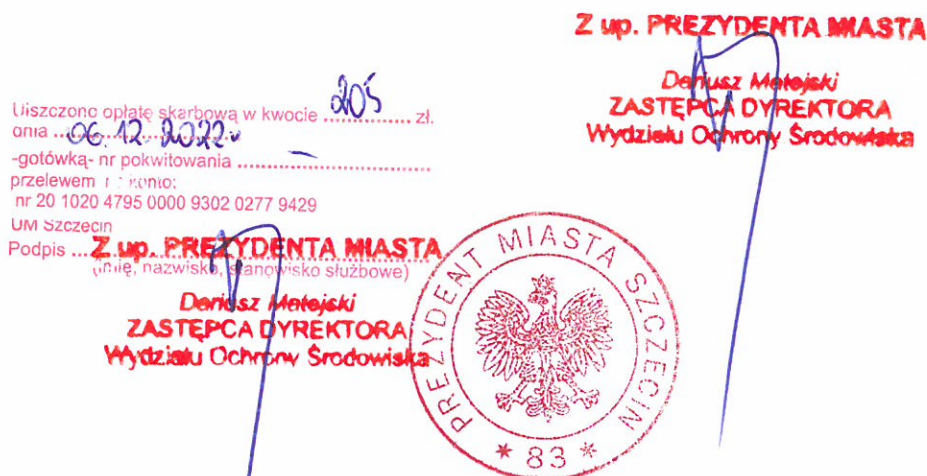 Z up. PREZYDENTA MIASTA
Dariusz Matejski
ZASTĘPCA DYREKTORA
Wydziału Ochrony Środowiska
Uiszczono opłatę skarbową w kwocie 205 zł.
dnia 06.12.2022r
-gotówką- nr pokwitowania .................... –
przelewem na konto:
nr 20 1020 4795 0000 9302 0277 9429
UM Szczecin
Podpis ... Z up. PREZYDENTA MIASTA
(imię, nazwisko, stanowisko służbowe)
Dariusz Matejski
ZASTĘPCA DYREKTORA
Wydziału Ochrony Środowiska
PREZYDENT MIASTA SZCZECIN
* 83 *